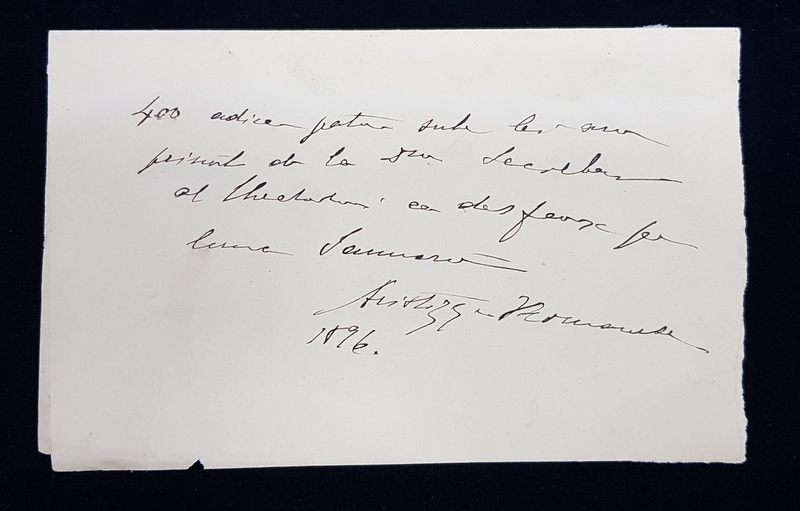 400 adica patru sute lei am
primit de la Dnu Secretar
al theatrului ca des pe
luna Januarie
Aristizza Romanescu
1896.